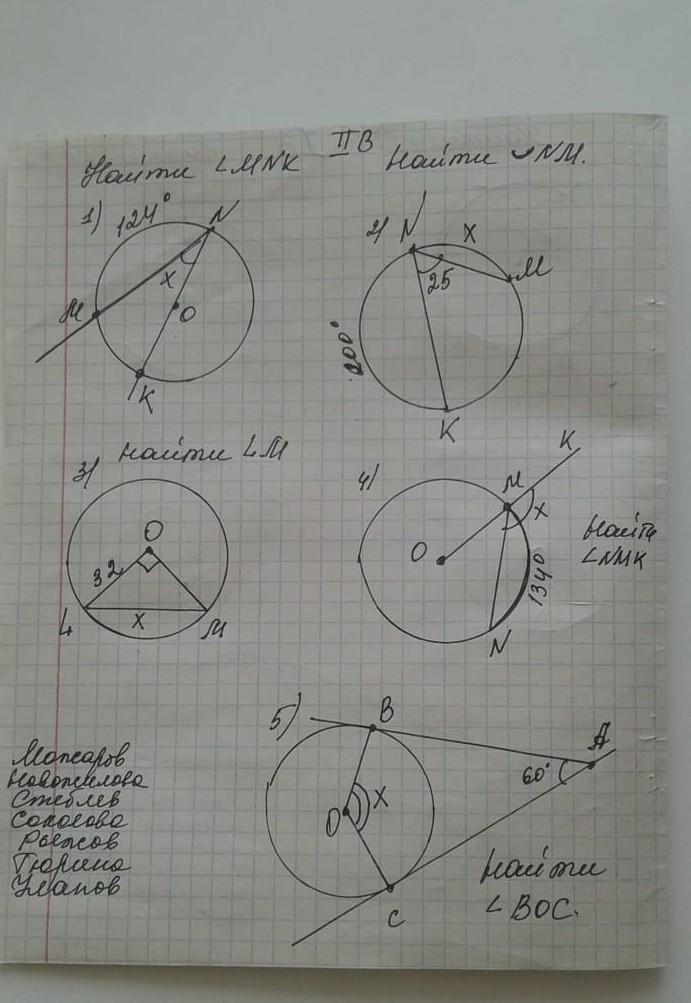 II В
Найти ∠MNK
Найти ◡NM.
1) 124°
N
x
M
O
K
2) N
x
M
25
200°
K
3) Найти ∠M
O
32
L
x
M
4)
K
M
x
O
134°
N
Найти
∠NMK
5)
B
A
60°
O
x
C
Найти
∠BOC.
Можаров
Новожилова
Стеблев
Соколова
Рыжов
Тюрина
Уланов